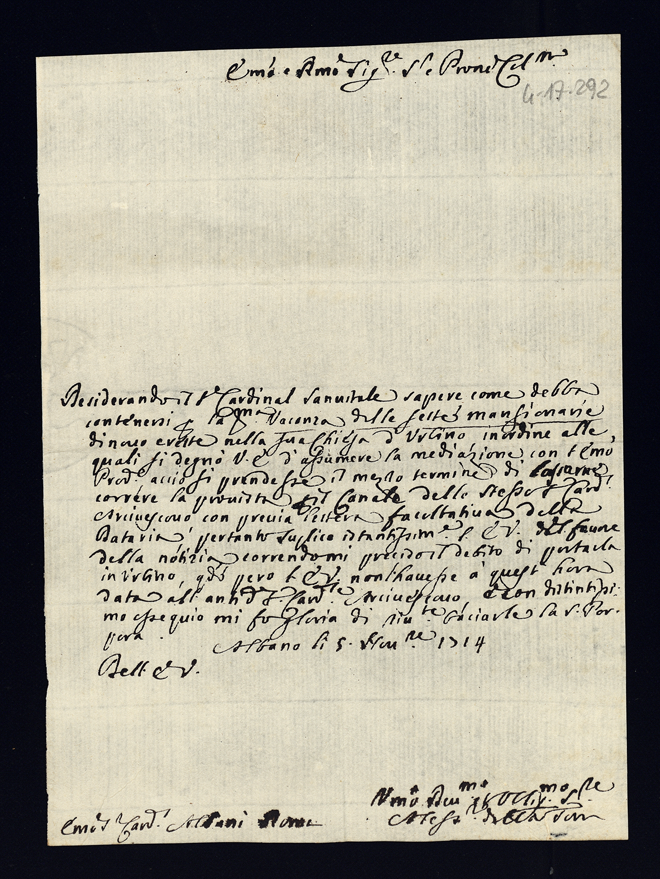 Emo e Rmo Sigre Sre Prone Colmo
4-17-292
Desiderando il Sr Cardinal Sanvitale sapere come debba
contenersi p la pma Vacanza delle sette mansionarie
di nuovo erette nella sua Chiesa d'Urbino in ordine alle
quali si degnò V. E. d'assumere la mediazione con l'Emo
Prod. acciò si prendesse il mezzo termine di lasciarne
correre la provista p il Canale dello stesso Sr Card.
Arcivescovo con previa lettera facultativa della
Dataria pertanto suplico istantissime l'E. V. del favore
della notizia correndomi preciso il debito di portarla
in Urbino, qdo però l'E. V. non l'havesse à quest'hora
data all' antido Sr Cardle Arcivescovo e con distintissi-
mo ossequio mi fo gloria di riute baciarle la S. Por-
pora. Albano li 5. Nov.re 1714
Dell' E. V.
Vmo Devmo ed Obligmo Sre
Aless.
Emo Sr Card. Albani Roma